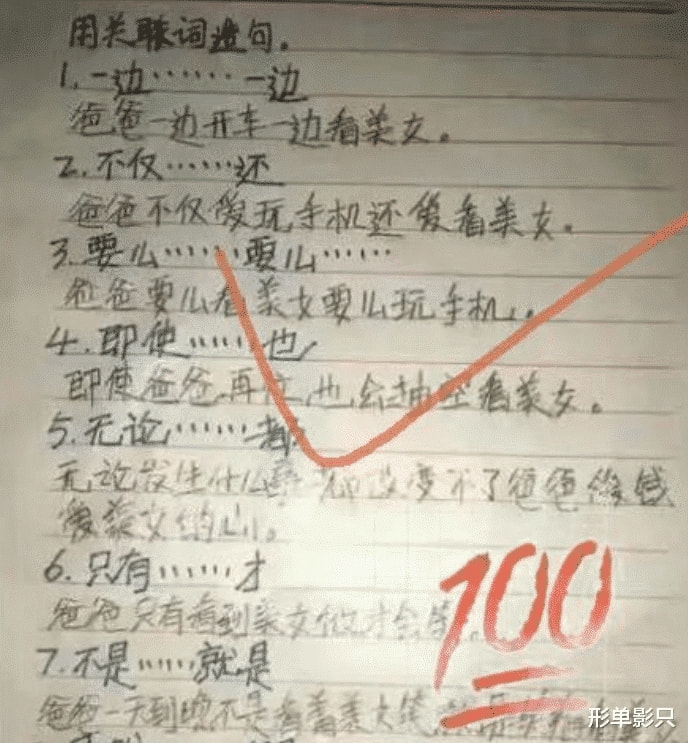 用关联词造句。
1.一边……一边
爸爸一边开车一边看美女。
2.不仅……还
爸爸不仅爱玩手机还爱看美女。
3.要么……要么……
爸爸要么看美女要么玩手机。
4.即使……也
即使爸爸再忙,也会抽空看美女。
5.无论……都
无论发生什么 都改变不了爸爸 
爱美女的心。
6.只有……才
爸爸只有看到美女他才会笑。
7.不是……就是
爸爸一天到晚不是看着美女笑
100
形单影只